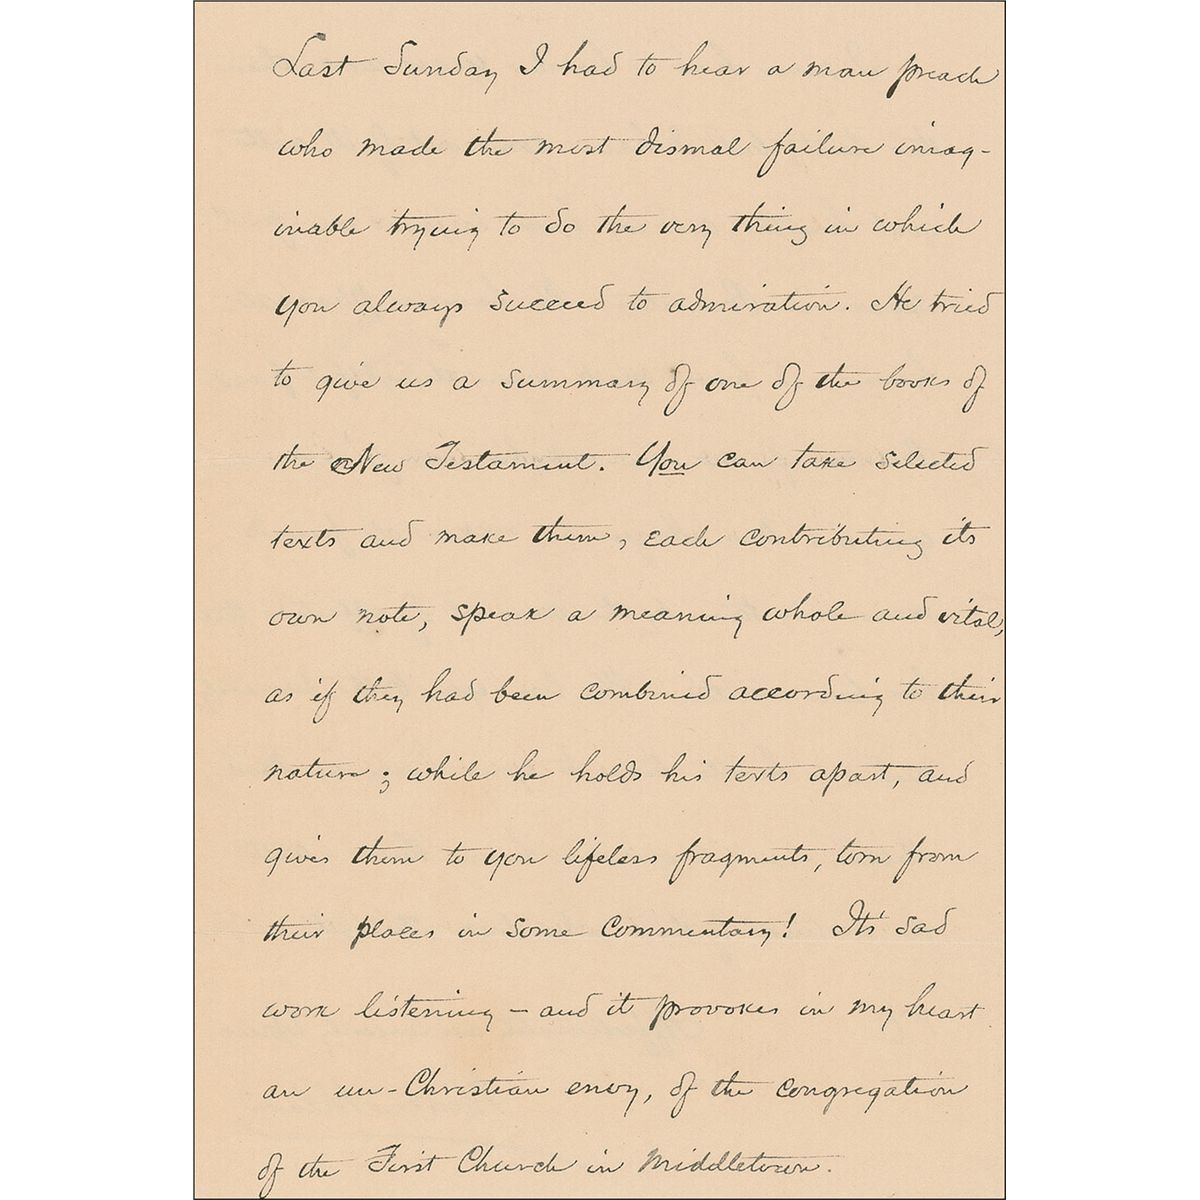 Last Sunday I had to hear a man preach
who made the most dismal failure imag-
inable trying to do the very thing in which
you always succeed to admiration. He tried
to give us a summary of one of the books of
the New Testament. You can take selected
texts and make them, each contributing its
own note, speak a meaning whole and vital,
as if they had been combined according to their
nature; while he holds his texts apart, and
gives them to you lifeless fragments, torn from
their places in some commentary! It's sad
work listening – and it provokes in my heart
an un-Christian envy, of the congregation
of the First Church in Middletown.